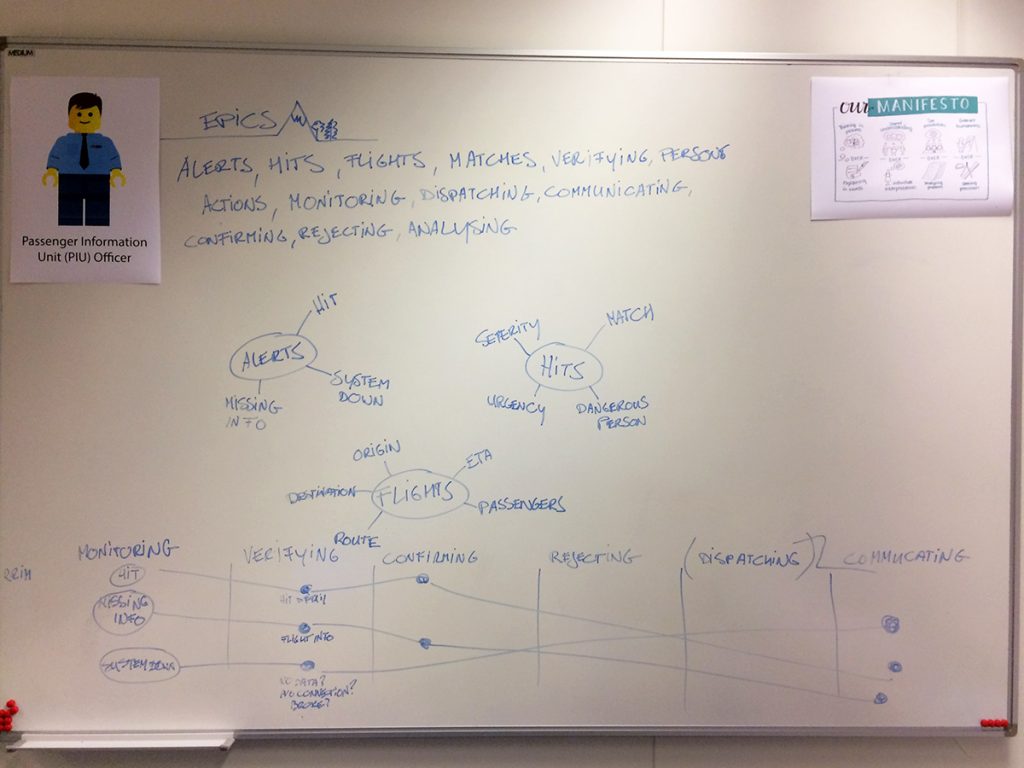 MEDIUM
Passenger Information
Unit (PIU) Officer
EPICS
ALERTS, HITS, FLIGHTS, MATCHES, VERIFYING, PERSONS
ACTIONS, MONITORING, DISPATCHING, COMMUNICATING,
CONFIRMING, REJECTING, ANALYSING
our MANIFESTO
OVER
OVER
OVER
OVER
HIT
ALERTS
SYSTEM
DOWN
MISSING
INFO
SEVERITY
MATCH
HITS
URGENCY
DANGEROUS
PERSON
ORIGIN
ETA
DESTINATION
FLIGHTS
PASSENGERS
ROUTE
MONITORING
VERIFYING
CONFIRMING
REJECTING
(DISPATCHING)
COMMUCATING
HIT
MISSING
INFO
FLIGHT INFO
SYSTEM DOWN
NO DATA?
NO CONNECTION?
BROKE?